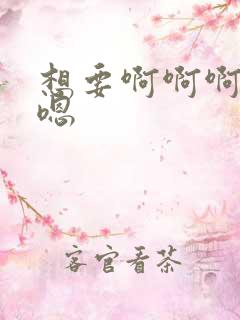 想要啊啊啊
嗯
客官看茶